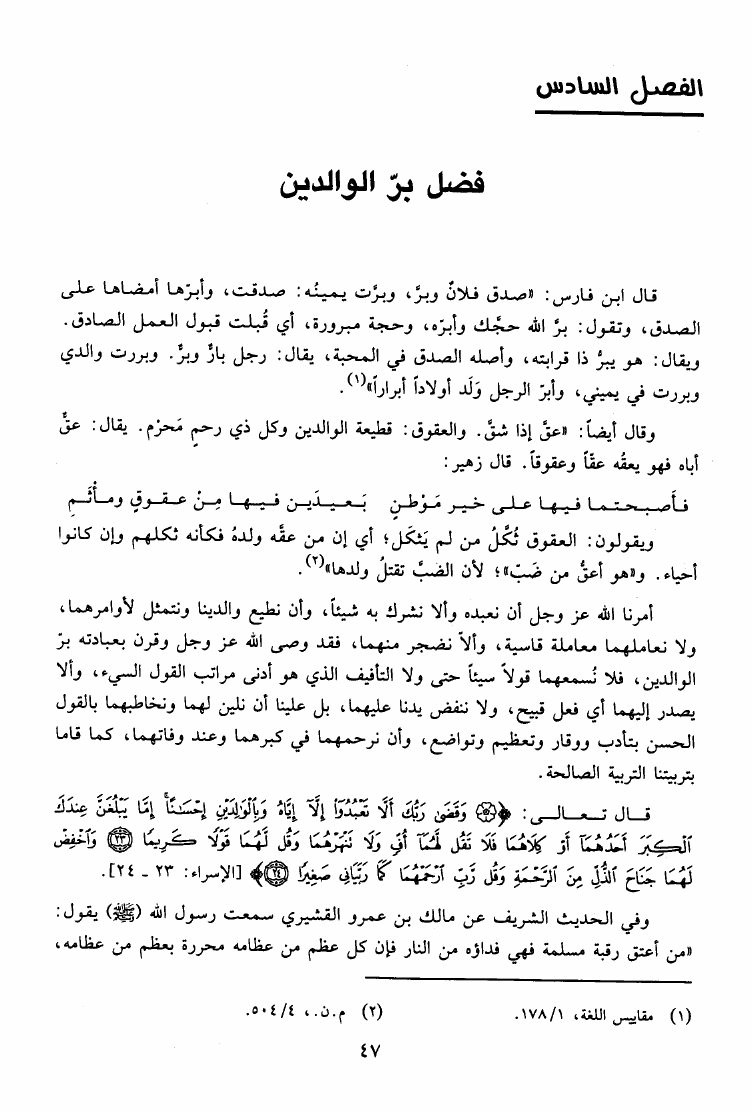 الفصل السادس
فضل برّ الوالدين
قال ابن فارس: «صدق فلانٌ وبرَّ، وبرَّت يمينُه: صدقت، وأبرّها أمضاها على
الصدق، وتقول: برَّ الله حجَّك وأبرّه، وحجة مبرورة، أي قُبلت قبول العمل الصادق.
ويقال: هو يبرُّ ذا قرابته، وأصله الصدق في المحبة، يقال: رجل بارٌّ وبرٌّ. وبررت والدي
وبررت في يميني، وأبرّ الرجل وَلَد أولاداً أبراراً»(١).
وقال أيضاً: «عقَّ إذا شقَّ. والعقوق: قطيعة الوالدين وكل ذي رحمٍ مَحرَم. يقال: عقَّ
أباه فهو يعقُّه عقّاً وعقوقاً. قال زهير:
فأصبحتما فيها على خير مَوْطنٍ بَعيدَين فيها مِنْ عقوقٍ ومأْثَمِ
ويقولون: العقوق ثُكْلُ من لم يَثكَل؛ أي إن من عقَّه ولدهُ فكأنه ثكلهم وإن كانوا
أحياء. و«هو أعقُّ من ضَبّ»؛ لأن الضبَّ تقتلُ ولدها»(٢).
أمرنا الله عز وجل أن نعبده وألا نشرك به شيئاً، وأن نطيع والدينا ونتمثل لأوامرهما،
ولا نعاملهما معاملة قاسية، وألاّ نضجر منهما، فقد وصى الله عز وجل وقرن بعبادته برّ
الوالدين، فلا نُسمعهما قولاً سيئاً حتى ولا التأفيف الذي هو أدنى مراتب القول السيء، وألا
يصدر إليهما أي فعل قبيح، ولا ننفض يدنا عليهما، بل علينا أن نلين لهما ونخاطبهما بالقول
الحسن بتأدب ووقار وتعظيم وتواضع، وأن نرحمهما في كبرهما وعند وفاتهما، كما قاما
بتربيتنا التربية الصالحة.
قال تعالى: ﴿۞ وَقَضَىٰ رَبُّكَ أَلَّا تَعْبُدُوٓا۟ إِلَّآ إِيَّاهُ وَبِٱلْوَٰلِدَيْنِ إِحْسَٰنًا ۚ إِمَّا يَبْلُغَنَّ عِندَكَ
ٱلْكِبَرَ أَحَدُهُمَآ أَوْ كِلَاهُمَا فَلَا تَقُل لَّهُمَآ أُفٍّ وَلَا نَنْهَرْهُمَا وَقُل لَّهُمَا قَوْلًا كَرِيمًا ٢٣ وَٱخْفِضْ
لَهُمَا جَنَاحَ ٱلذُّلِّ مِنَ ٱلرَّحْمَةِ وَقُل رَّبِّ ٱرْحَمْهُمَا كَمَا رَبَّيَانِى صَغِيرًا ٢٤﴾ [الإسراء: ٢٣ - ٢٤].
وفي الحديث الشريف عن مالك بن عمرو القشيري سمعت رسول الله (ﷺ) يقول:
«من أعتق رقبة مسلمة فهي فداؤه من النار فإن كل عظم من عظامه محررة بعظم من عظامه،
(١) مقاييس اللغة، ١٧٨/١. (٢) م.ن.، ٥٠٤/٤.
٤٧